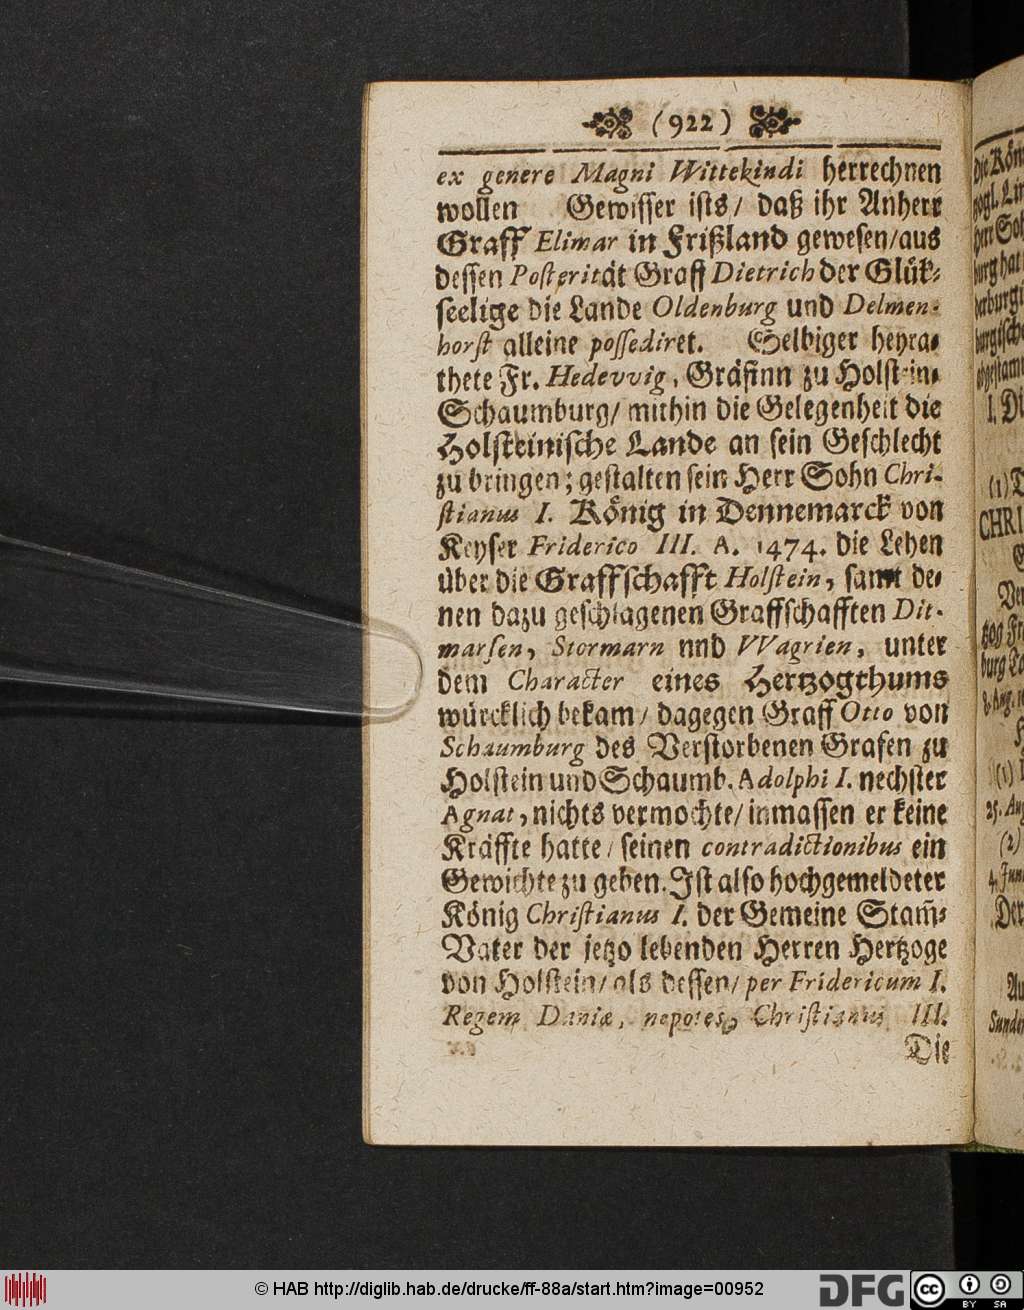 (922)
ex genere Magni Wittekindi herrechnen
wollen Gewisser ists/ daß ihr Anherr
Graff Elimar in Frißland gewesen/aus
dessen Posterität Graff Dietrich der Glük-
seelige die Lande Oldenburg und Delmen-
horst alleine possediret. Selbiger heyra-
thete Fr. Hedevvig, Gräfinn zu Holstein-
Schaumburg/ mithin die Gelegenheit die
Holsteinische Lande an sein Geschlecht
zu bringen; gestalten sein Herr Sohn Chri-
stianus I. König in Dennemarck von
Keyser Friderico III. A. 1474. die Lehen
über die Graffschafft Holstein, samt de-
nen dazu geschlagenen Graffschafften Dit-
marsen, Stormarn nnd VVagrien, unter
dem Character eines Hertzogthums
würcklich bekam/ dagegen Graff Otto von
Schaumburg des Verstorbenen Grafen zu
Holstein und Schaumb. Adolphi I. nechster
Agnat, nichts vermochte/ inmassen er keine
Kräffte hatte/ seinen contradictionibus ein
Gewichte zu geben. Ist also hochgemeldeter
König Christianus I. der Gemeine Stam̃-
Vater der jetzo lebenden Herren Hertzoge
von Holstein/ als dessen/ per Fridericum I.
Regem Daniæ, nepotes, Christianus III.
Die
© HAB http://diglib.hab.de/drucke/ff-88a/start.htm?image=00952
DFG
cc BY SA